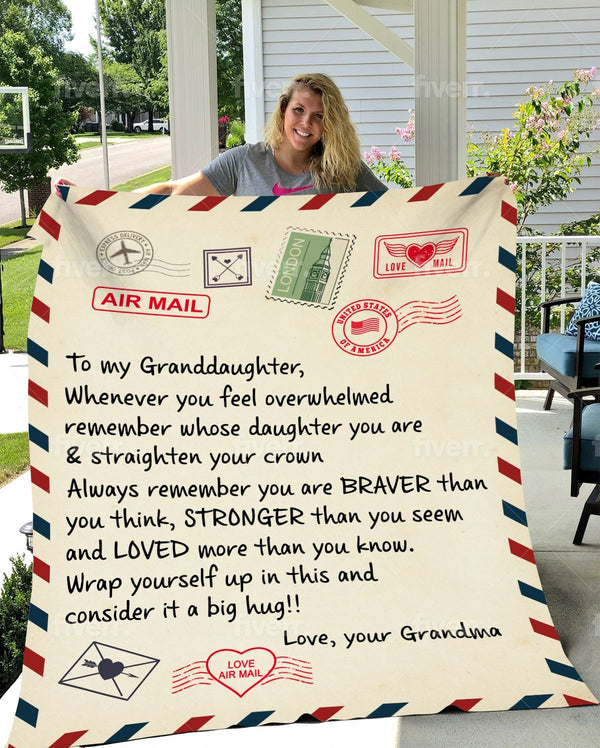 EXPRESS DELIVERY
AIR MAIL
LONDON
LOVE MAIL
AIR MAIL
UNITED STATES
OF AMERICA
To my Granddaughter,
Whenever you feel overwhelmed
remember whose daughter you are
& straighten your crown
Always remember you are BRAVER than
you think, STRONGER than you seem
and LOVED more than you know.
Wrap yourself up in this and
consider it a big hug!!
Love, your Grandma
LOVE
AIR MAIL
fiverr.